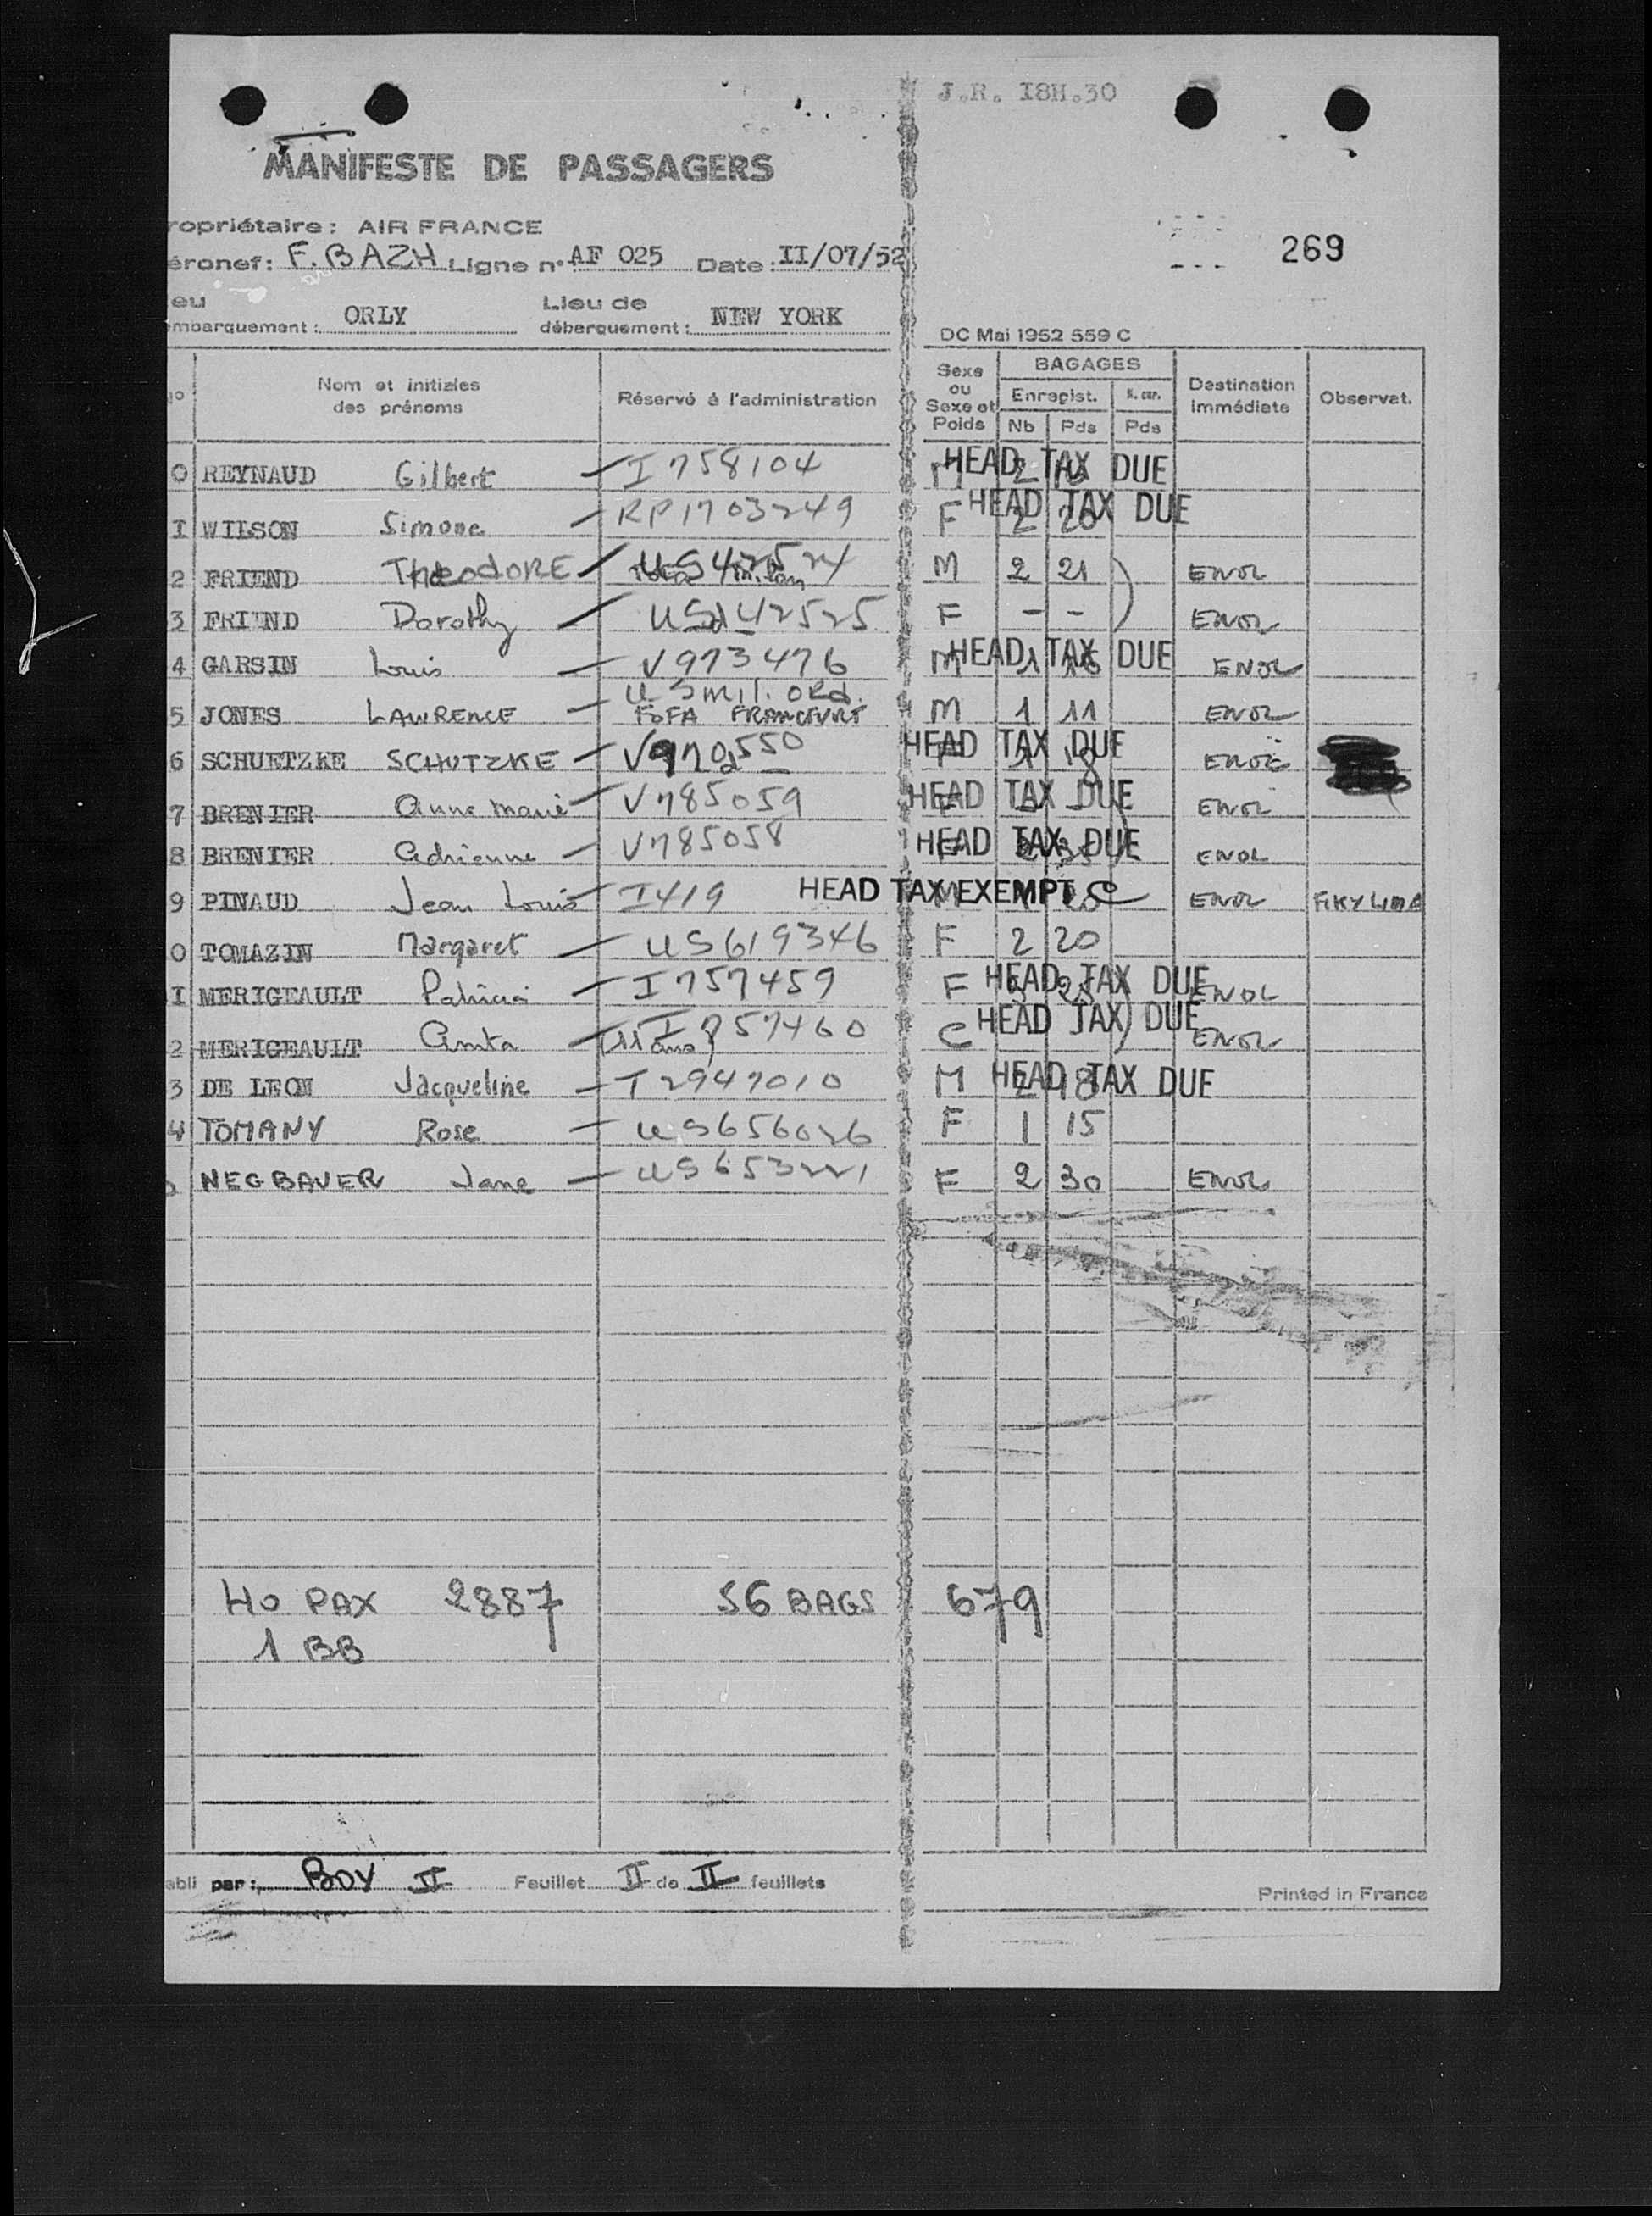 J.R. I8H.30
MANIFESTE DE PASSAGERS
269
ropriétaire : AIR FRANCE
éronef : F. BAZH Ligne n° AF 025 Date : II/07/52
eu
mbarquement : ORLY Lieu de débarquement : NEW YORK
DC Mai 1952 559 C
No Nom et initiales des prénoms Réservé à l'administration Sexe ou Sexe et Poids BAGAGES Enregist. Nb Pds N. enr. Pds Destination immédiate Observat.
0 REYNAUD Gilbert I 758104 M 2 HEAD TAX DUE
I WILSON Simone RP1703249 F 2 20 HEAD TAX DUE
2 FRIEND TheodORE US 42524 M 2 21 ENOL
3 FRIEND Dorothy US 42525 F - - ENOL
4 GARSIN Louis V973476 M 1 HEAD TAX DUE ENOL
US mil. ORd.
5 JONES LAWRENCE FOFA FRANCFURT M 1 11 ENOL
6 SCHUETZKE SCHUTZKE V970550 1 18 HEAD TAX DUE ENOL
7 BRENIER Anne Marie V785059 HEAD TAX DUE ENOL
8 BRENIER Adrienne V785058 HEAD TAX DUE ENOL
9 PINAUD Jean Louis I419 HEAD TAX EXEMPT C ENOL
0 TOMAZIN Margaret US 619346 F 2 20
I MERIGEAULT Patricia I 757459 F HEAD TAX DUE ENOL
2 MERIGEAULT Anita (11 ans) I 757460 C HEAD TAX DUE ENOL
3 DE LEON Jacqueline T2947010 M 2 18 HEAD TAX DUE
4 TOMANY Rose US656026 F 1 15
NEGBAVER Jane US 653221 F 2 30 ENOL
40 PAX 2887 56 BAGS 679
1 BB
abli par : BOY II Feuillet II de II feuillets
Printed in France